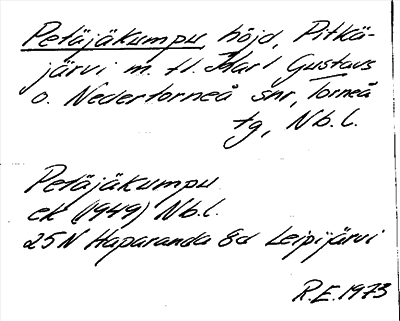 Petäjäkumpu höjd, Pitkä-
järvi m. fl. Karl Gustavs
o. Nedertorneå snr, Torneå
tg, Nb. l.
Petäjäkumpu
ek (1949) Nb. l.
25N Haparanda 8d Leipijärvi
R.E. 1973